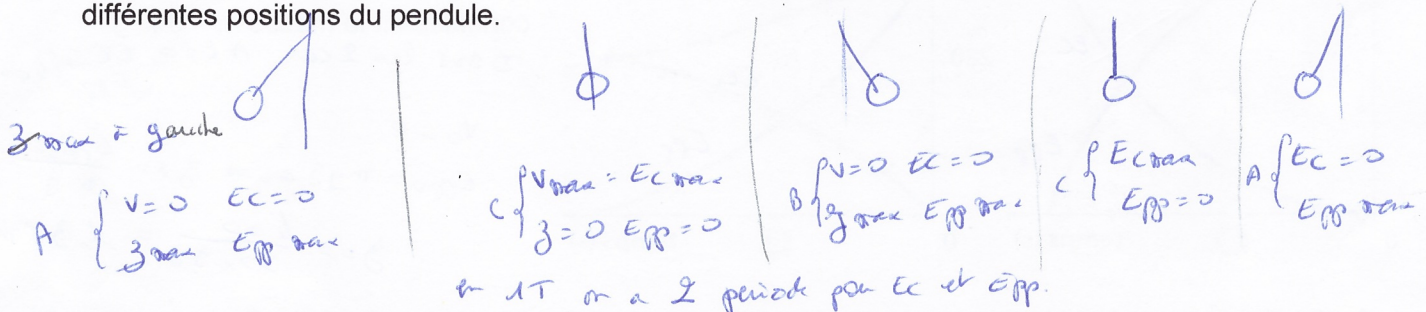 différentes positions du pendule.
z max à gauche
A { V = 0 Ec = 0
z max Epp max
C { Vmax = Ec max
z = 0 Epp = 0
B { V = 0 Ec = 0
z max Epp max
C { Ec max
Epp = 0
A { Ec = 0
Epp max
en 1T on a 2 période pour Ec et Epp.